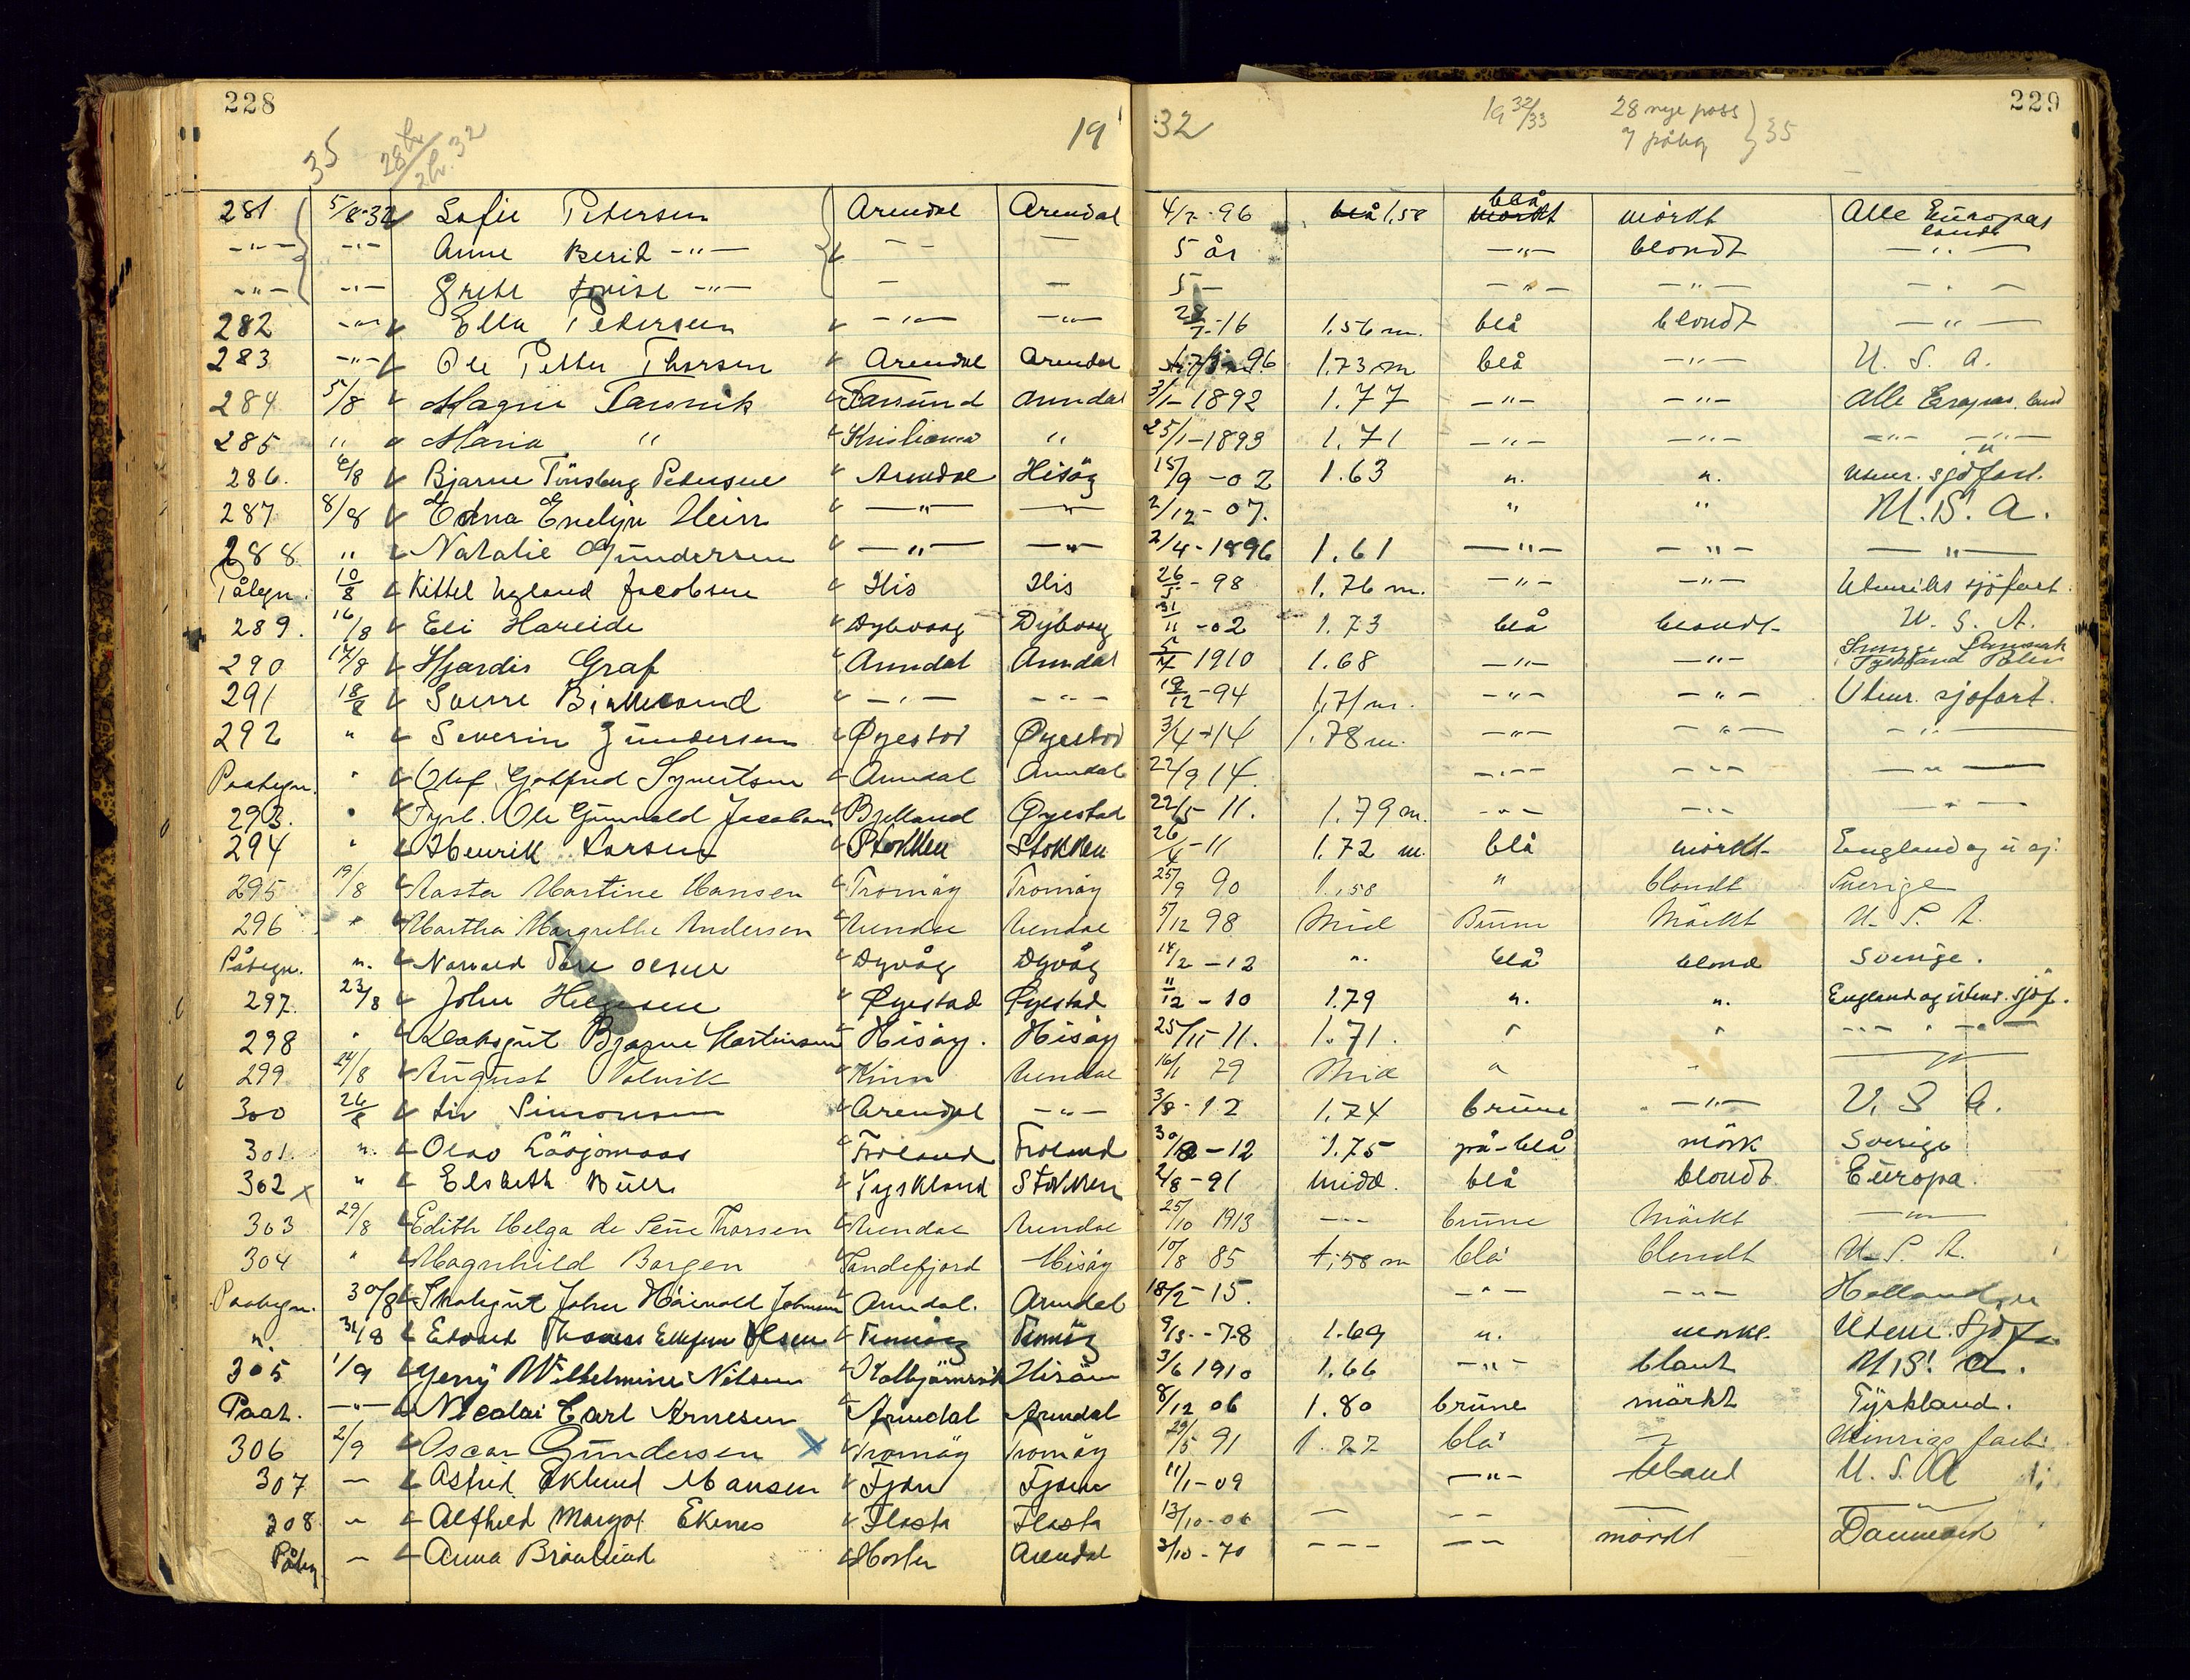 228
229
35 28 32
19 32
19 32/33 28 nye pass 7 påteg 35
281 5/8-32 Sofie Petersen Arendal Arendal 4/7-96 blå 1,58 mørkt blå mørkt Alle Europas lande
-"- -"- Anne Berit -"- - - - 5 år -"- blondt -"-
-"- -"- Grete Lovise -"- - - 5 - -"- -"- -"-
282 -"- Ella Petersen -"- -"- 28/7-16 1.56 m. blå blondt -"-
283 -"- Ole Petter Thorsen Arendal Arendal 96 1.73 m blå -"- U. S. A.
284 5/8 Magne Farsund Arendal 3/1-1892 1.77 -"- -"- Alle Europas land
285 " Maria " Kristiania " 25/1-1893 1.71 -"- -"- -"- -"-
286. 6/8 Bjarne Tönsberg Petersen Arendal Hisöy 15/9-02 1.63 ". ". utenr. sjöfart.
287 8/8 Edna Evelyn Heirr -"- -"- 2/12-07. " " U.S.A.
288 " Natalie Gundersen -"- -"- 2/4-1896 1.61 -"- -"- -"-
Pålegn. 10/8 Kittel Nyland Jacobsen His His 26/5-98 1.76 m. -"- -"- Utenriks sjöfart.
289. 16/8 Eli Hareide Dybvaag Dybvaag 31/11-02 1.73 blå blondt U. S. A.
290 17/8 Hjørdis Graf Arendal Arendal 5/4 1910 1.68 -"- -"- Danmark Tyskland
291 18/8 Sverre -"- -"- 19/12-94 1.71 m. -"- -"- Utenr. sjøfart.
292 " Severin Gundersen Øyestad Øyestad 3/4-14 1.78 m. -"- -"- -"-
Paategn. " Olaf Gotfred Syvertsen Arendal Arendal 22/9 14. -"- -"- -"-
293. " Fyrb. Ole Gunvald Jacobsen Bjelland Øyestad 22/5-11. 1.79 m. -"- -"- -"-
294 " Henrik Larsen Stokken Stokken 26/4-11 1.72 m. blå mörkt England og
295 19/8 Aasta Martine Hansen Tromöy Tromöy 25/9 90 1.58 " blondt Sverige
296 " Martha Margrethe Andersen Arendal Arendal 5/12 98 Mid Brune Mörkt U. S. A.
Påtegn. ". Norvald Tore Olsen Dyvåg Dyvåg 14/2-12 ". blå blond Sverige.
297. 23/8 John Helgesen Øyestad Øyestad 11/12-10 1.79 ". ". England og utenr. sjöf.
298 " Dæksgut Bjarne Martinsen Hisöy. Hisöy 25/11-11. 1.71. " " -"- " -"-
299 24/8 August Valvik Kinn Arendal 16/1 79 Mid " " "
300 26/8 Liv Simonsen Arendal -"- 3/8-12 1.74 brune -"- U. S. A.
301 ". Olav Froland Froland 30/-12 1.75 grå-blå mörk Sverige
302 x " Elsbeth Tyskland Stokken 2/8-91 midd. blå blondt Europa.
303 29/8 Edith Helga de Seue Thorsen Arendal Arendal 25/10 1913 --- brune Mörkt -"-
304 " Magnhild Borgen Sandefjord Hisöy 10/8 85 1,58 m blå blondt U. S. A.
Paategn. 30/8 Arendal. Arendal 18/2-15. -"- -"- Holland
". 31/8 Edvard Thomas Olsen Tromöy Tromöy 9/3-78 1.69 ". mörkt. Utenr. Sjöf
305 1/9 Jenny Wilhelmine Nilsen Kolbjörnsvik 3/6 1910 1.66 -"- blont U.S.A.
Paat. -"- Nicolai Carl Arnesen Arendal Arendal 8/12 06 1.80 brune mörkt Tyskland.
306 2/9 Oscar Gundersen x Tromöy Tromöy 29/5 91 1.77 blå Utenrigs fart
307 - Astrid Eklund Hansen Fjære Fjære 11/1-09 -"- blond U. S. A
308 - Alfhild Margot Ekenes Flosta Flosta 13/10-06 - -- - -"-
Påteg - Anna Arendal 3/10-70 --- -- mörkt Danmark